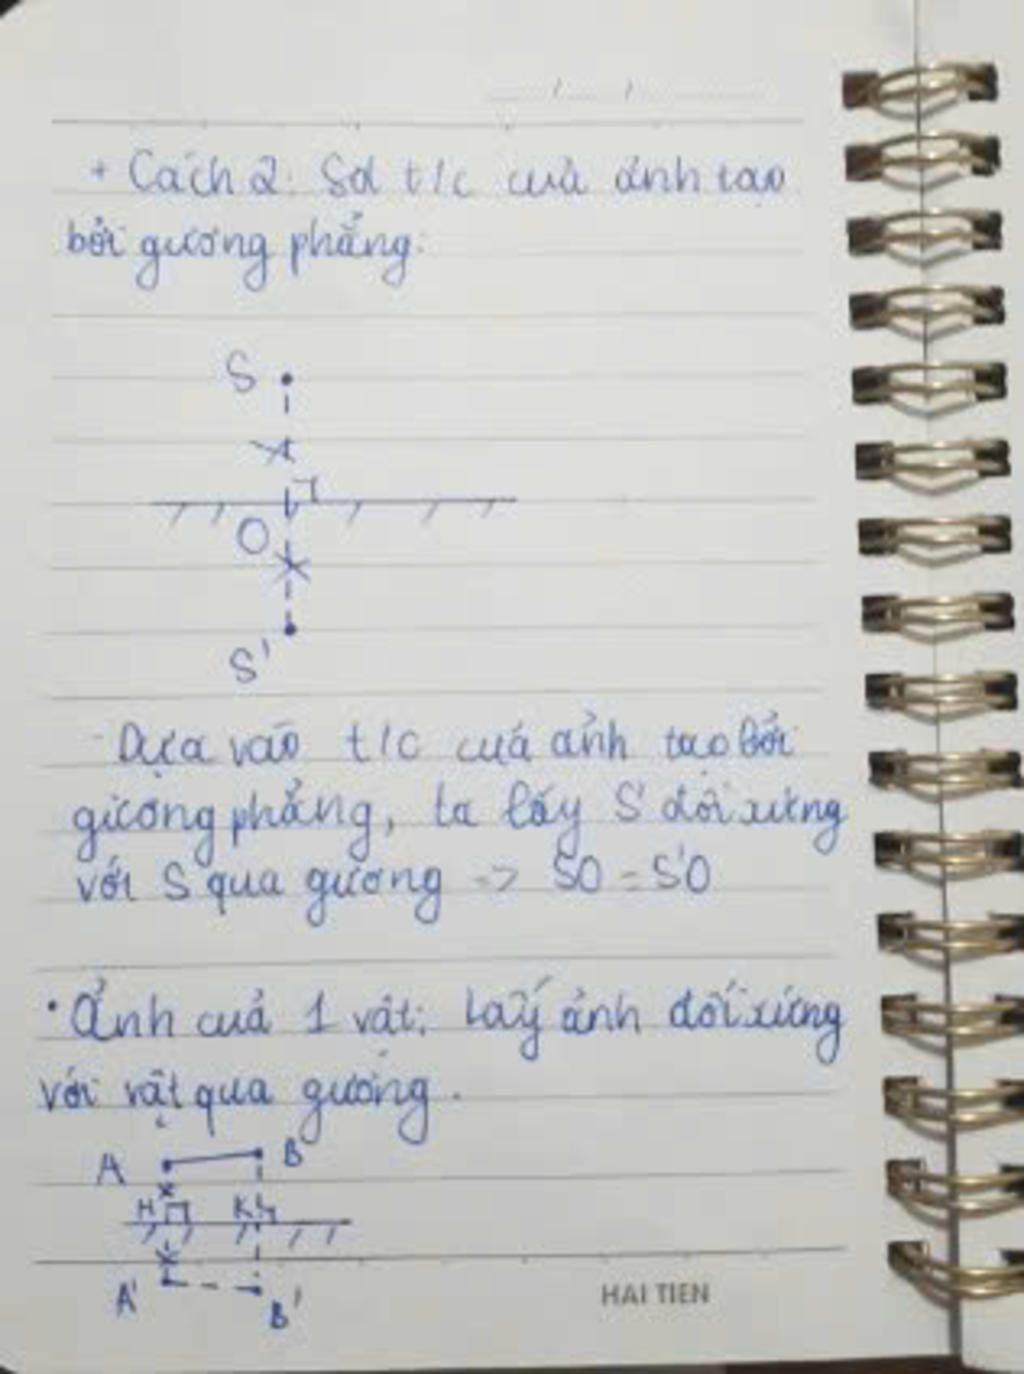 + Cách 2: Sd t/c của ảnh tạo
bởi gương phẳng:
S
O
S'
Dựa vào t/c của ảnh tạo bởi
gương phẳng, ta lấy S' đối xứng
với S qua gương => SO = S'O
• Ảnh của 1 vật: Lấy ảnh đối xứng
với vật qua gương.
A B
H K
A' B'
HAI TIEN